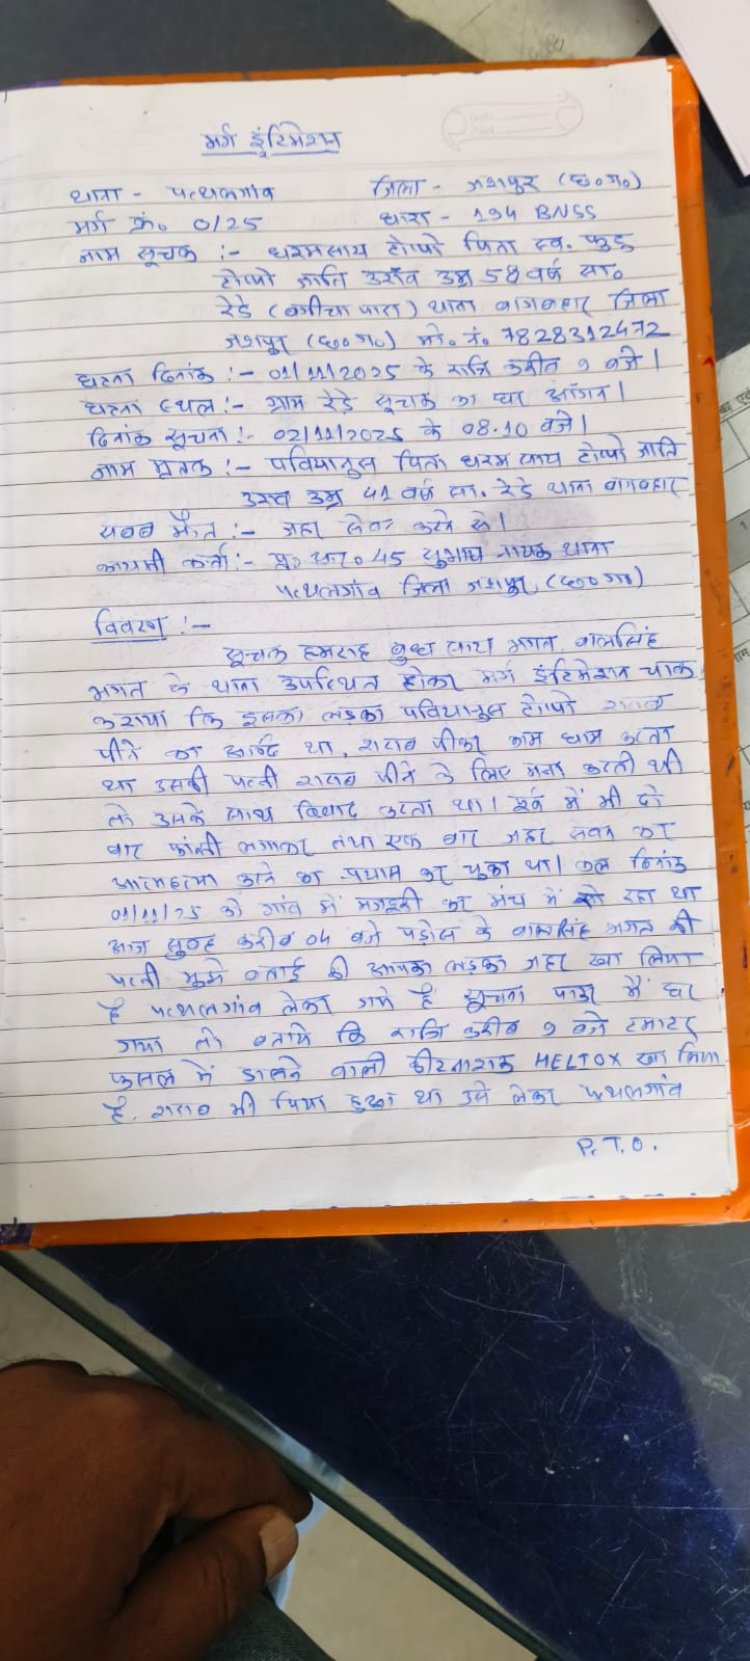 मर्ग इंटिमेशन
थाना - पत्थलगांव जिला - जशपुर (छ०ग०)
मर्ग क्रं० 0/25 धारा - 194 BNSS
नाम सूचक :- धरमसाय टोप्पो पिता स्व. फुड़
टोप्पो जाति उरांव उम्र 58 वर्ष सा०
रेडे (बगीचा पारा) थाना बागबहार जिला
जशपुर (छ०ग०) मो० नं० 7828312472
घटना दिनांक :- 01/11/2025 के रात्रि करीब 9 बजे।
घटना स्थल :- ग्राम रेडे सूचक का घर आंगन।
दिनांक सूचना :- 02/11/2025 के 08.10 बजे।
नाम मृतक :- पवियानुस पिता धरम साय टोप्पो जाति
उरांव उम्र 41 वर्ष सा. रेडे थाना बागबहार
सबब मौत :- जहर सेवन करने से।
कायमी कर्ता :- प्र० आर० 45 सुभाष नायक थाना
पत्थलगांव जिला जशपुर (छ०ग०)
विवरण :-
सूचक हमराह बुध साय भगत, बालसिंह
भगत के थाना उपस्थित होकर मर्ग इंटिमेशन चाक
कराया कि इसका लड़का पवियानुस टोप्पो शराब
पीने का आदि था, शराब पीकर काम धाम करता
था उसकी पत्नी शराब पीने के लिए मना करती थी
तो उसके साथ विवाद करता था। पूर्व में भी दो
बार फांसी लगाकर तथा एक बार जहर सेवन कर
आत्महत्या करने का प्रयास कर चुका था। कल दिनांक
01/11/25 को गांव में का मंच में सो रहा था
आज सुबह करीब 04 बजे पड़ोस के बालसिंह भगत की
पत्नी मुझे बताई की आपका लड़का जहर खा लिया
है पत्थलगांव लेकर गये है सूचना पाकर मैं घर
गया तो बताये कि रात्रि करीब 9 बजे टमाटर
फसल में डालने वाली कीटनाशक HELTOX खा लिया
है, शराब भी पिया हुआ था उसे लेकर पत्थलगांव
P.T.O.